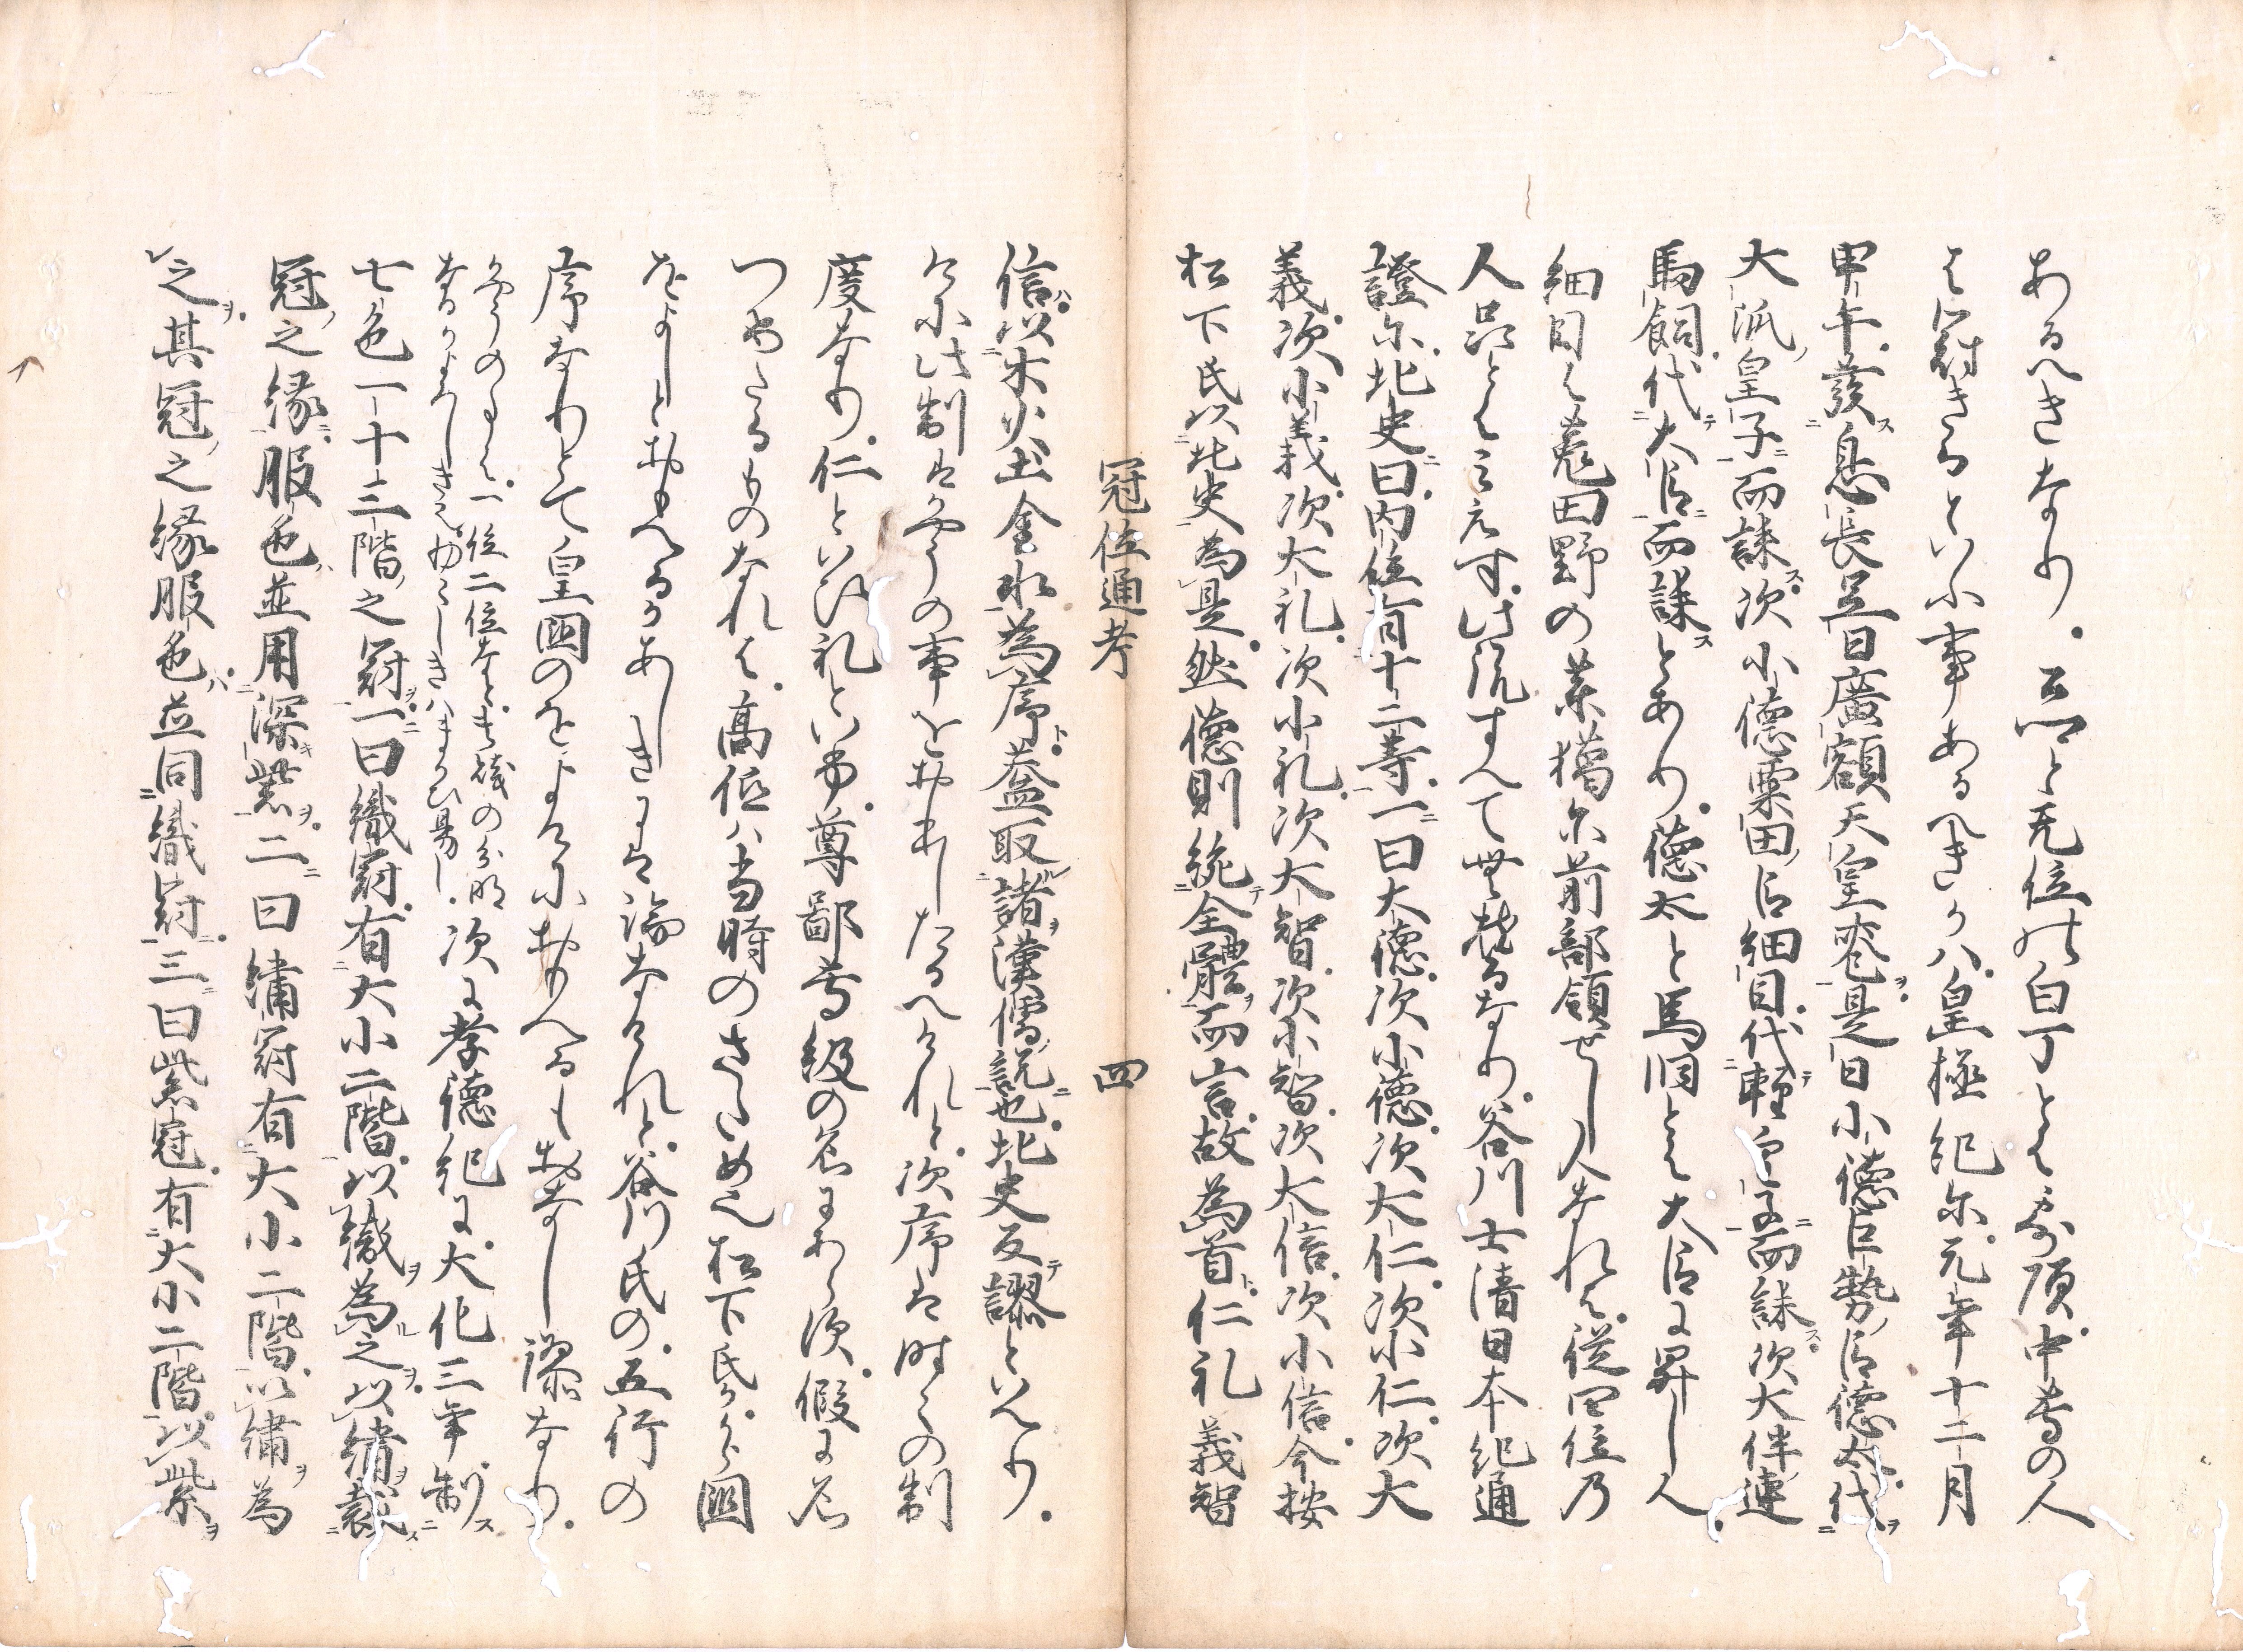 あるへきなり。五品と无位の白丁とを
は冠きるといふ事あるへきかは。皇極紀尓。元年十二月
甲午。發息長足日廣額天皇喪。是日小徳巨勢臣徳太代
大派皇子而誄。次小徳粟田臣細目。代軽皇子而誄。次大伴連
馬飼。代大臣而誄とあり。徳太と馬飼とは大臣に昇し人。
細目は菟田野の菜楉尓前部領せし人なれは。従四位乃
人品とはみえす。此説すへて無せるなり。谷川士清日本紀通
證尓。北史曰。内位有十二等。一曰大徳。次小徳。次大仁。次小仁。次大
義。次小義。次大礼。次小礼。次大智。次小智。次大信。次小信。今按
松下氏以北史為是。然徳則統全體而言。故為首。仁礼義智
冠位通考　四
信以木火土金水為序。蓋取諸漢儒説也。北史反謬といへり。
けふ此制はかやうの事をおもひしたるへけれと。次序は時々の制
度なり。仁といひ礼といふ。尊卑等級の名にあらす。假に名
つけたるものなれは。高低は当時のさためへ。松下氏か。から國
をよしとおもへるかあしきには論なけれと。谷川氏の。五行の
序なりとて皇國のをよけにおもへるもおなし謬なり。
かやうのことは。一位二位なと。其儀の分明
なるかよろし。きえかたしきはまかひ易し。次に孝徳紀に。大化三年制
七色一十三階之冠。一曰織冠。有大小二階。以織為之。以繍裁
冠之縁。服色並用深紫。二曰繍冠有大小二階。以繍為
之。其冠之縁服色並同織冠。三曰紫冠。有大小二階。以紫